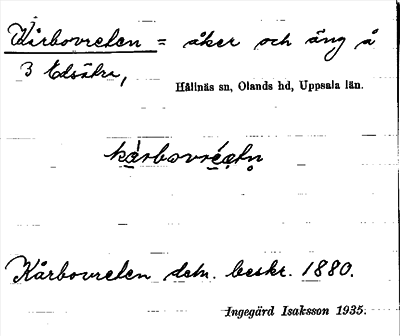 Kårbovreten = åker och äng å
3 Edsätra,
Hållnäs sn, Olands hd, Uppsala län.
Kårbovreten dem. beskr. 1880.
Ingegärd Isaksson 1935.